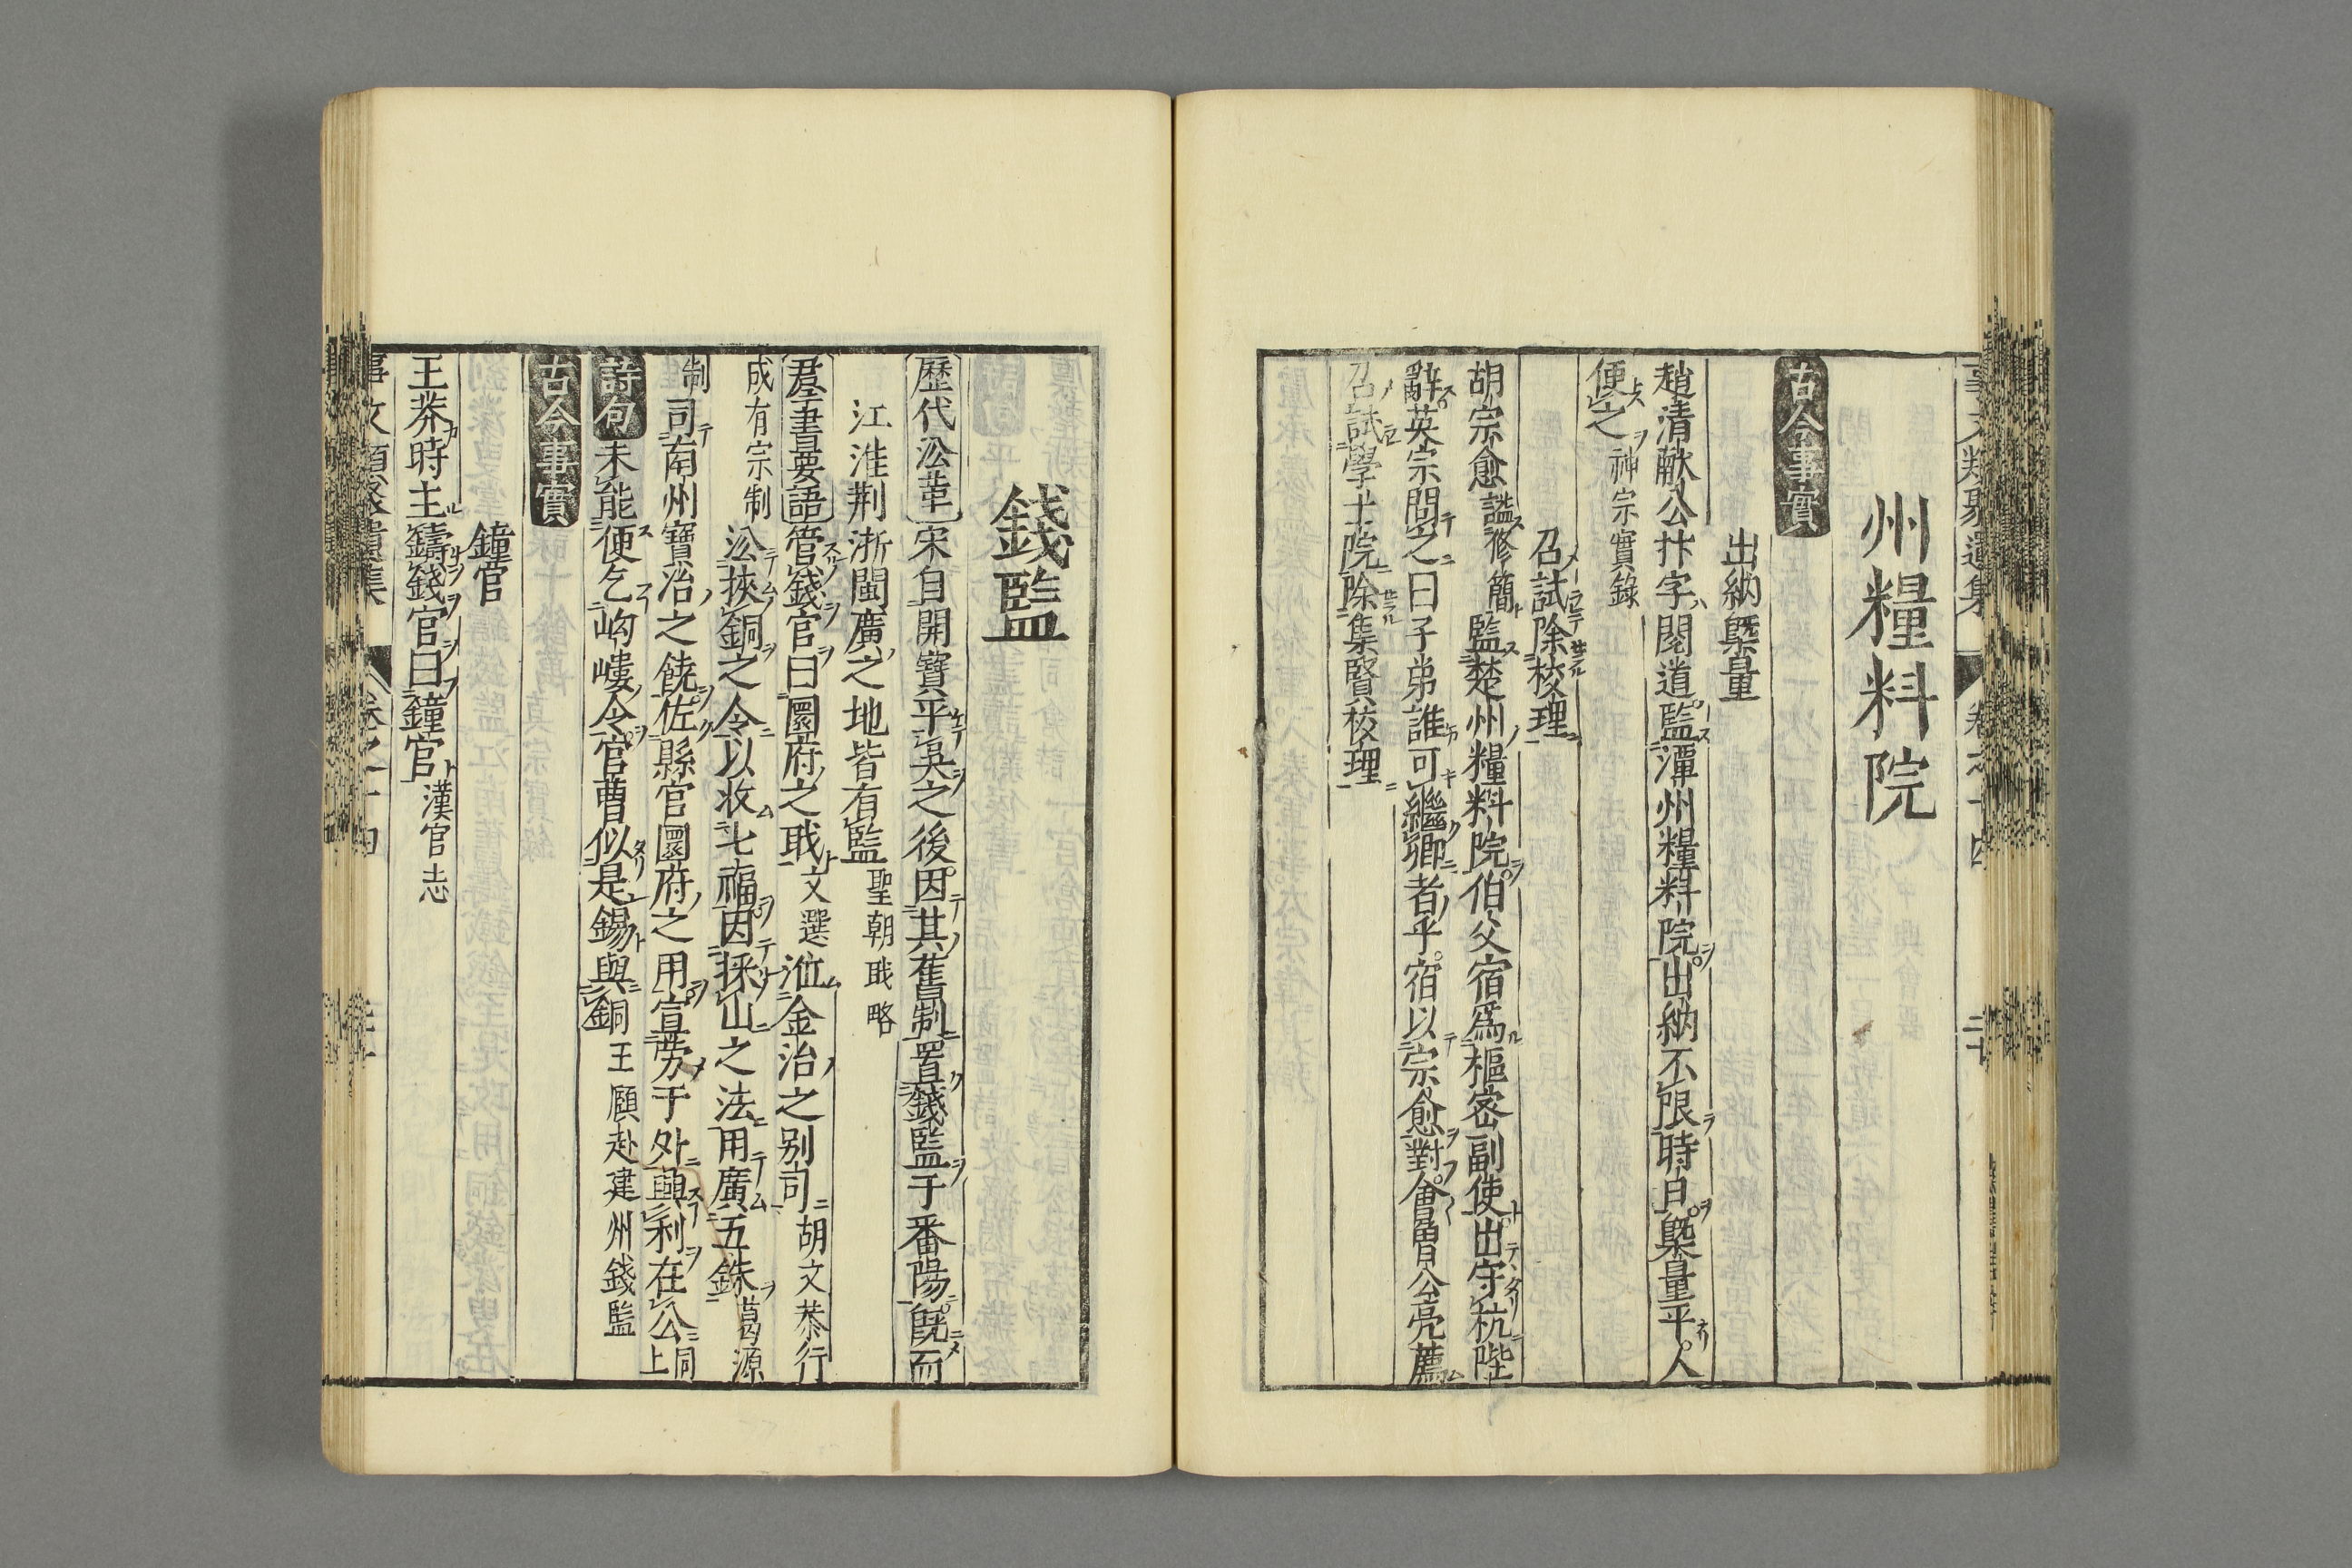 州糧料院
古今事實
出納槩量
趙清献公抃字閱道監潭州糧料院出納不限時日槩量平人
便之神宗實錄
召試除校理
胡宗愈謚修簡監楚州糧料院伯父宿爲樞密副使出守杭陛
辭英宗問之曰子弟誰可繼卿者乎宿以宗愈對會魯公亮薦
召試學士院除集賢校理
錢監
歷代沿革宋自開寶平吳之後因其舊制置錢監于番陽旣而
江淮荆浙閩廣之地皆有監聖朝職略
羣書要語管錢官曰圜府之職文選涖金冶之别司胡文恭行
成有宗制沿挾銅之令以收七福因採山之法用廣五銖葛源
制司南州寶冶之饒佐縣官圜府之用宣勞于外興利在公同上
詩句未能便乞岣嶁令官曹似是錫與銅王願赴建州錢監
古今事實
鐘官
王莽時主鑄錢官曰鐘官漢官志